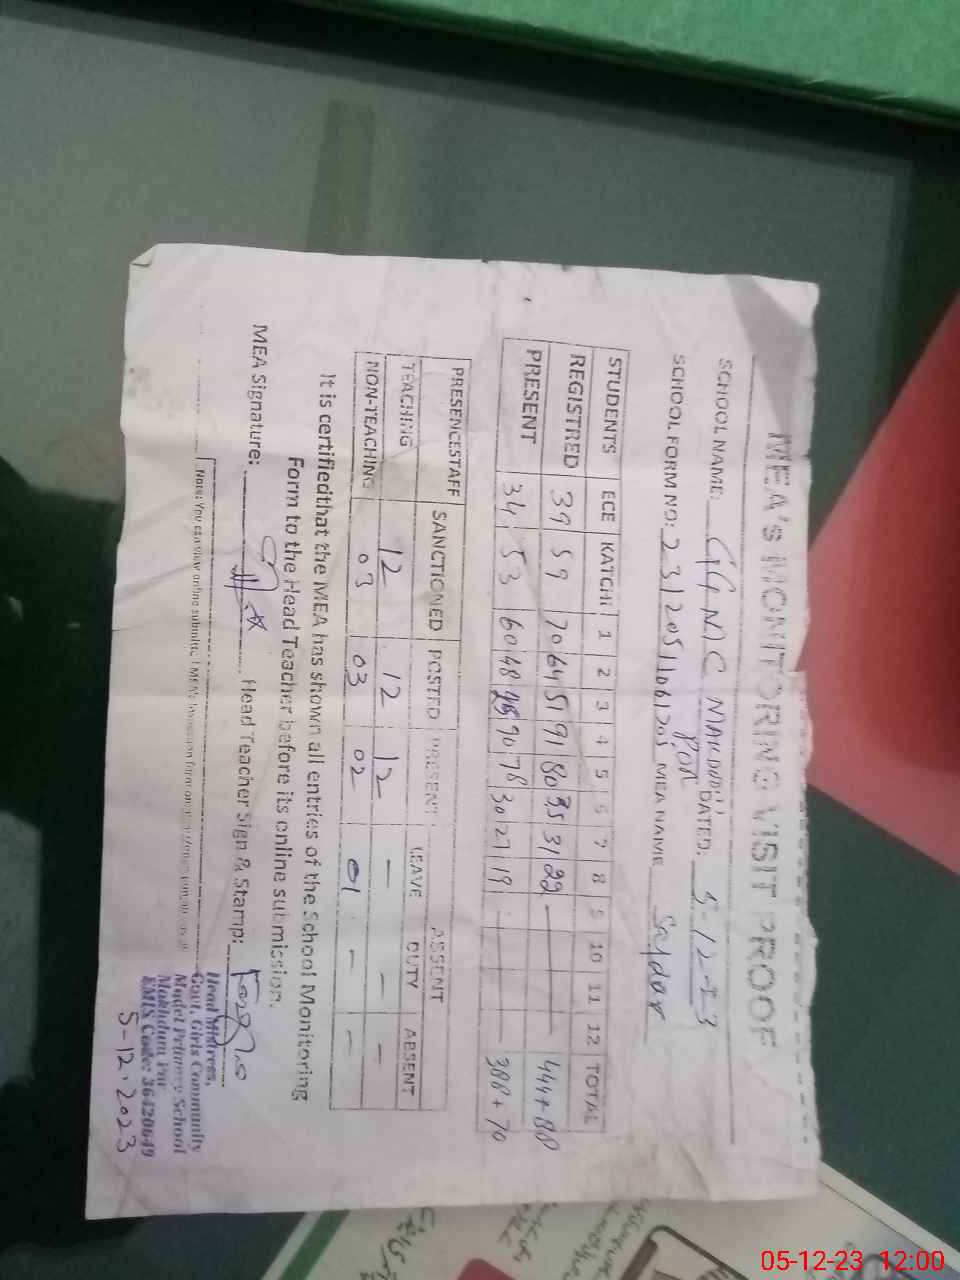 MEA's MONITORING VISIT PROOF
SCHOOL NAME: DATED: 5-12-23
SCHOOL FORM NO: MEA NAME Safdar
STUDENTS ECE KATCHI 1 2 3 4 5 6 7 8 9 10 11 12 TOTAL
REGISTRED 39 59 70 64 51 91 80 35 31 22 — — 444+88
PRESENT 34 53 60 48 90 78 30 21 19 — — 388+70
PRESENCESTAFF SANCTIONED POSTED PRESENT ABSENT
LEAVE DUTY ABSENT
TEACHING 12 12 12 — — —
NON-TEACHING 03 03 02 01 — —
It is certifiedthat the MEA has shown all entries of the School Monitoring
Form to the Head Teacher before its online submission.
MEA Signature: Head Teacher Sign & Stamp:
Head Mistress,
Govt. Girls Community
Model Primary School
Makhdum Pur
EMIS Code: 36420649
5-12-2023
Note: You can view online submitted MEA's
05-12-23 12:00